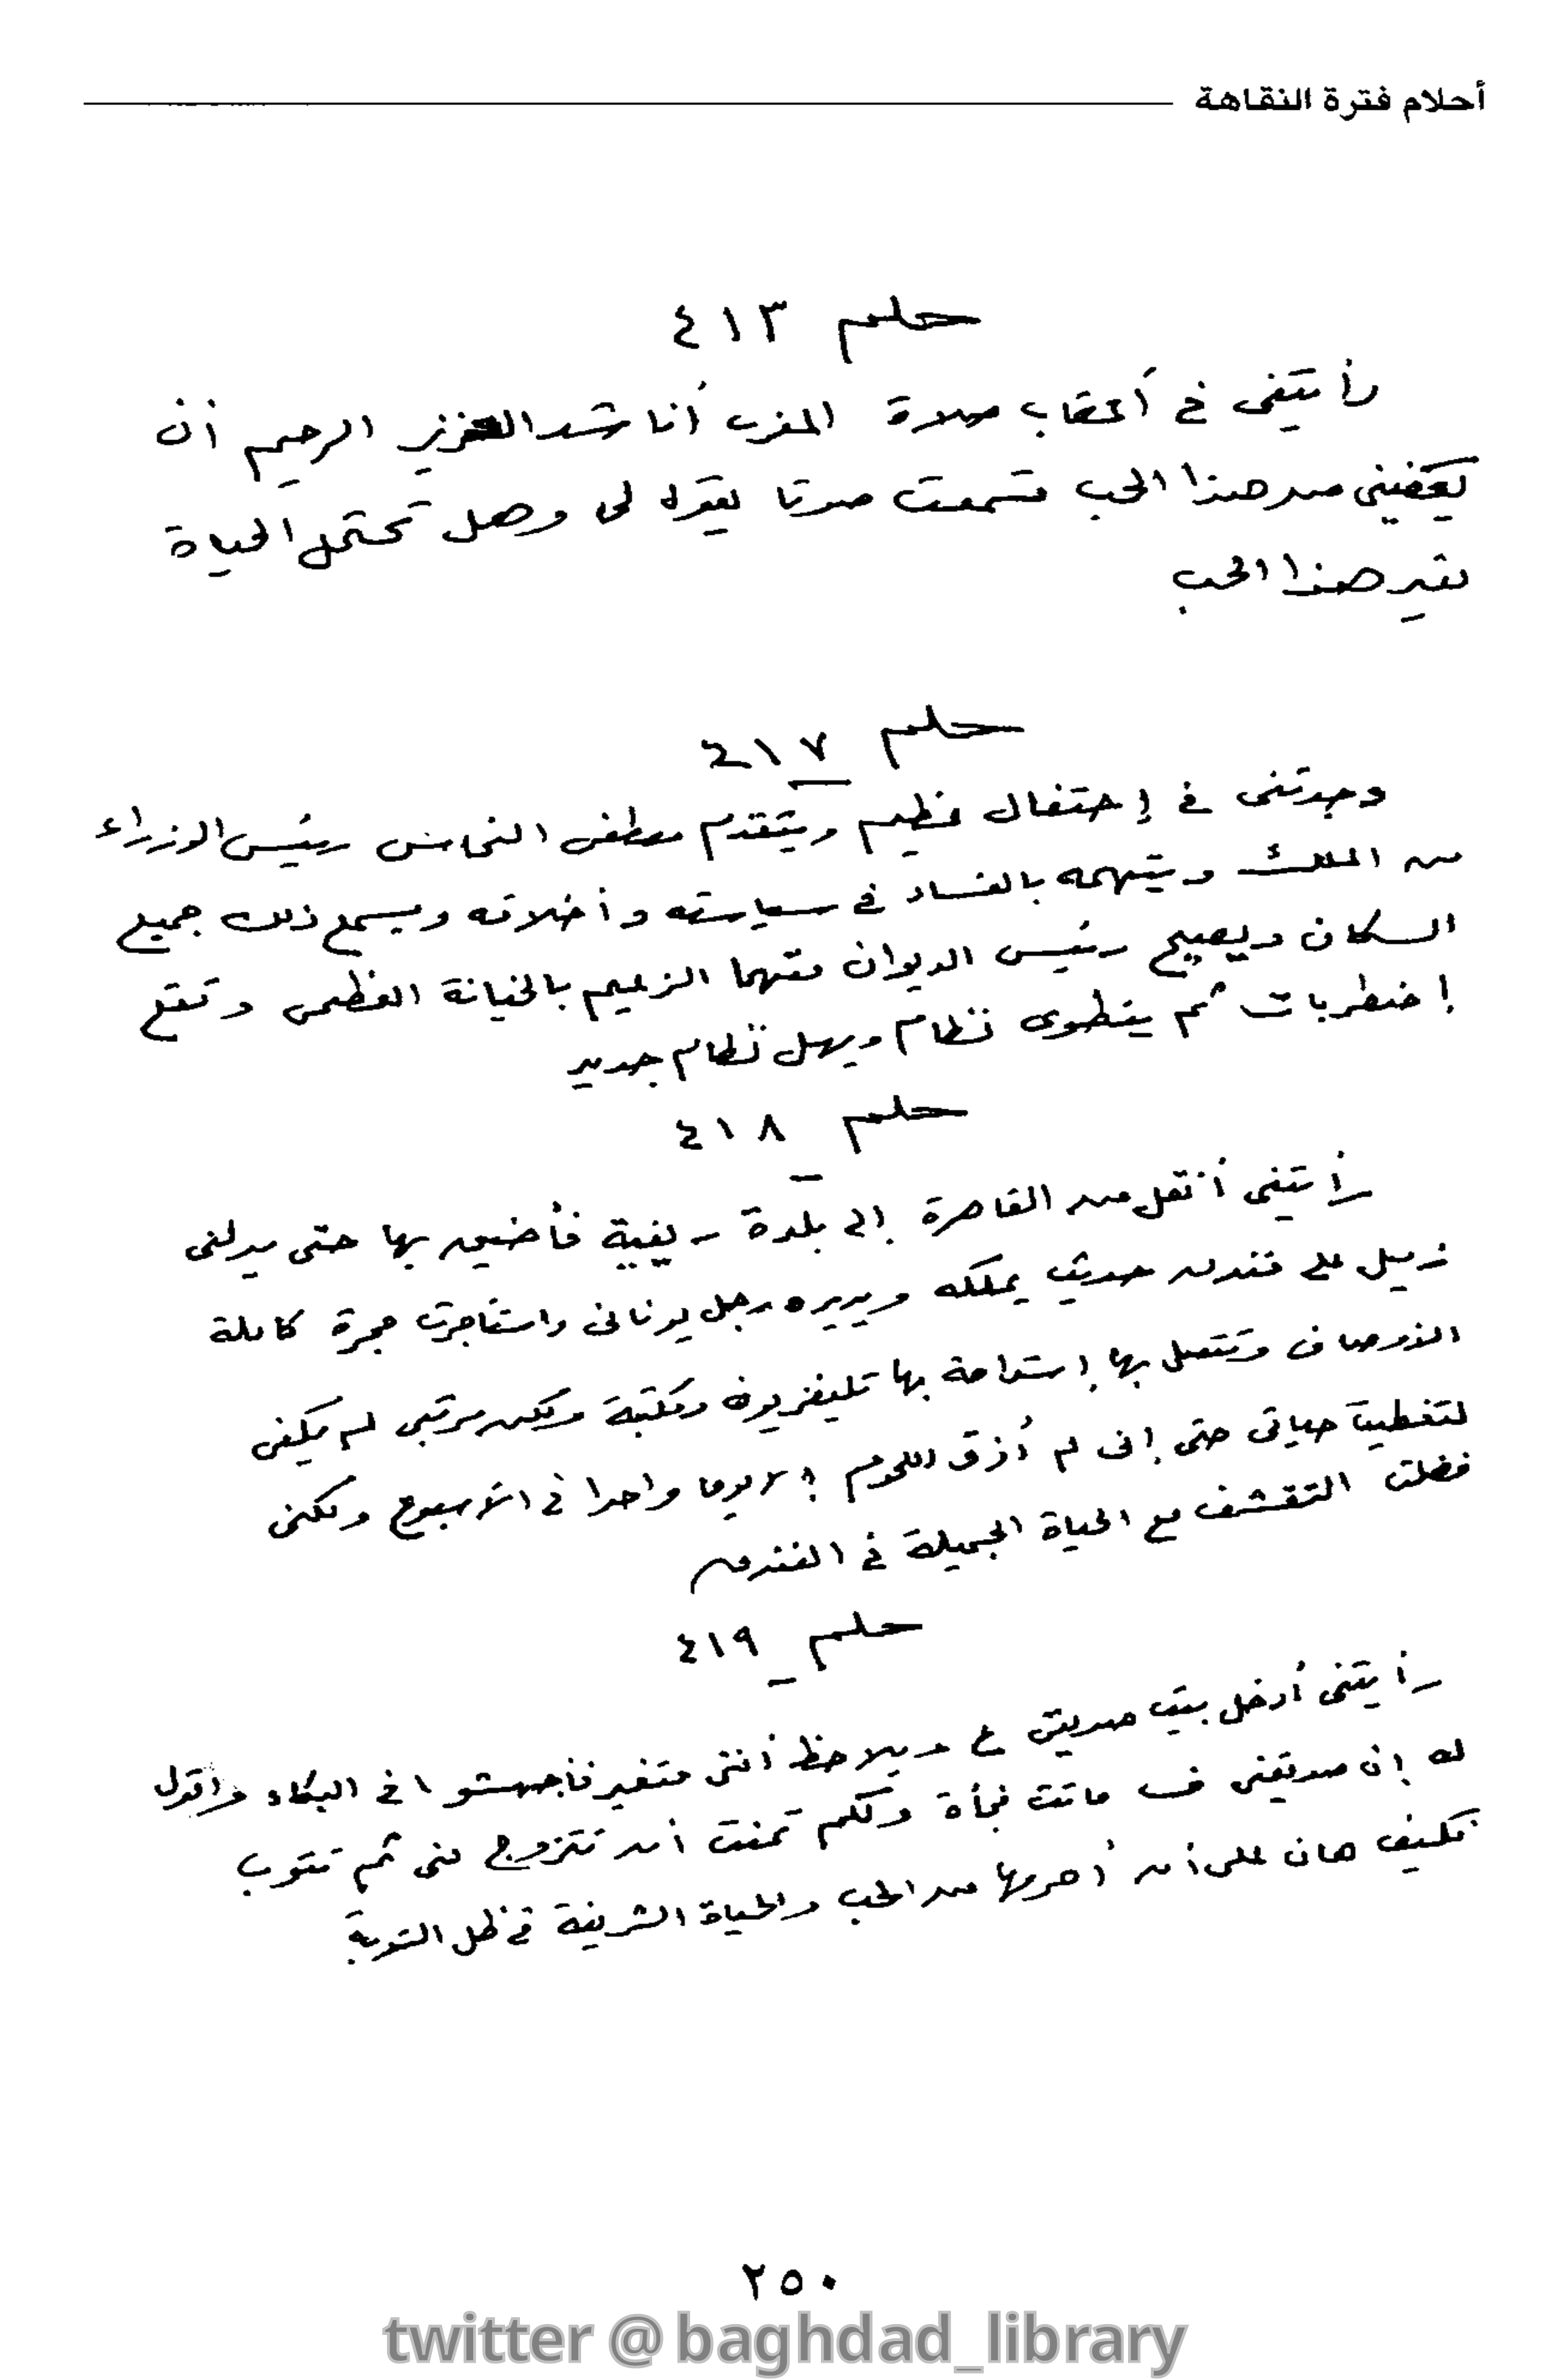 أحلام فترة النقاهة
حلم ٤١٣
رأيتنى فى أعقاب صلاة المغرب أناشد العزيز الرحيم أن
يعفينى من هذا الحب فسمعت صوتا يقول لى وهل تحتمل الحياة
بغير هذا الحب
حلم ٤١٧
وجدتنى فى إحتفال عظيم ويتقدم مصطفى النحاس رئيس الوزراء
من الملك ويتهمه بالفساد فى سياسته وأخلاقه ويسمع ذلك جميع
السكان ويصيح رئيس الديوان متهما الزعيم بالخيانة العظمى وتقع
إضطربات ثم ينطوى نظام ويهل نظام جديد
حلم ٤١٨
رأيتنى أنقل من القاهرة إلى بلدة ريفية فأضيق بها حتى يدلنى
زميل على فندق حديث يملكه ويديره رجل يونانى واستأجرت حجرة كاملة
الأوصاف وتتصل بها إستراحة بها تليفزيون ومكتبة ولكن مرتبى لم يكفى
لتغطية حياتى حتى إنى لم أذق اللحوم إلا يوما واحدا فى الأسبوع ولكنى
فضلت التقشف مع الحياة الجميلة فى الفندق
حلم ٤١٩
رأيتنى أدخل بيت صديقى ع ويلاحظ أننى متغير فأجهشوا فى البكاء وأقول
له إن صديقتى ف ماتت فجأة ولكم تمنت أن تتزوج منى ثم تتوب
فكيف هان على أن أحرمها من الحب والحياة الشريفة فى ظل التوبة
٢٥٠
twitter @baghdad_library